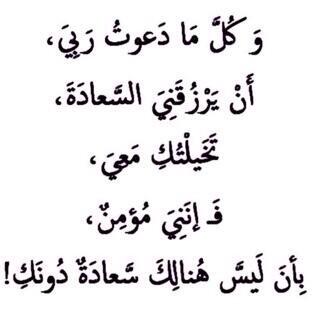 وَ كُلَّ مَا دَعوتُ رَبِيَ،
أَنْ يَرْزُقَنِيَ السَّعادَةَ،
تَخَيلْتُكِ مَعِيَ،
فَـ إنَنِيَ مُؤمِنٌ،
بِأنَ لَيسَّ هُنالِكَ سَّعادَةٌ دُونَكِ!